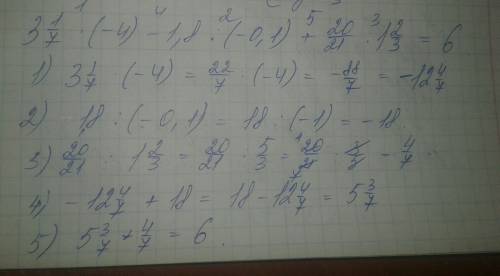 3 1/7 · (-4) - 1,8 : (-0,1) + 20/21 : 1 2/3 = 6
1) 3 1/7 · (-4) = 22/7 · (-4) = -88/7 = -12 4/7
2) 1,8 : (-0,1) = 18 : (-1) = -18
3) 20/21 : 1 2/3 = 20/21 : 5/3 = 20/21 · 3/5 = 4/7
4) -12 4/7 + 18 = 18 - 12 4/7 = 5 3/7
5) 5 3/7 + 4/7 = 6.